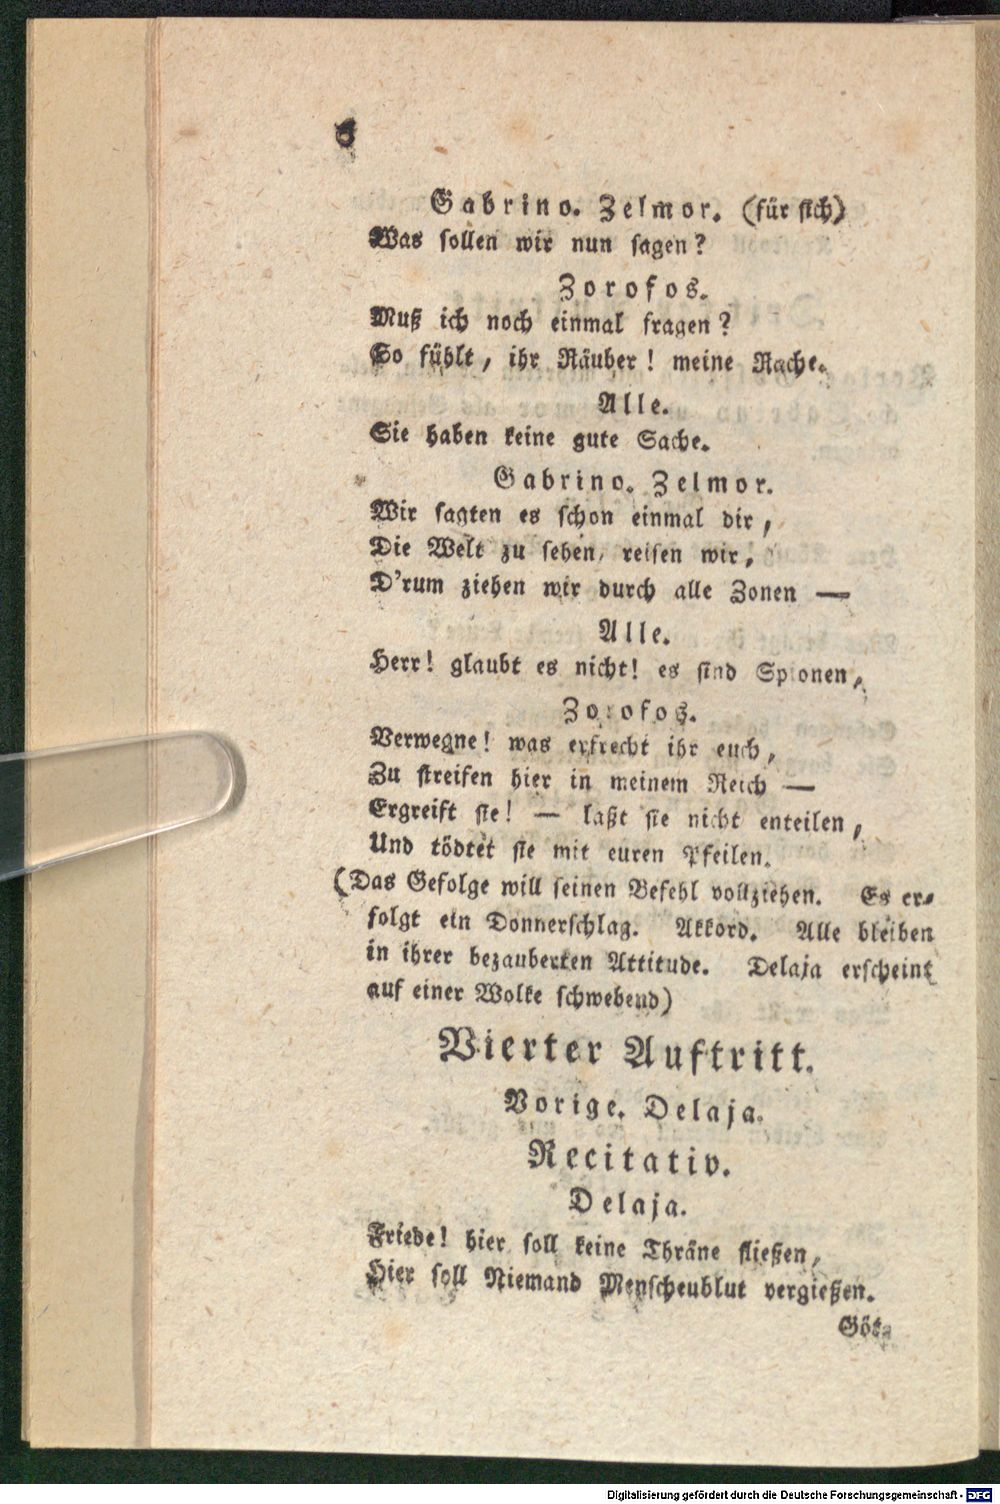 6
Gabrino. Zelmor. (für sich)
Was sollen wir nun sagen?
Zorofos.
Muß ich noch einmal fragen?
So fühlt, ihr Räuber! meine Rache.
Alle.
Sie haben keine gute Sache.
Gabrino. Zelmor.
Wir sagten es schon einmal dir,
Die Welt zu sehen, reisen wir,
D'rum ziehen wir durch alle Zonen —
Alle.
Herr! glaubt es nicht! es sind Spionen,
Zorofos.
Verwegne! was erfrecht ihr euch,
Zu streifen hier in meinem Reich —
Ergreift sie! — laßt sie nicht enteilen,
Und tödtet sie mit euren Pfeilen.
(Das Gefolge will seinen Befehl vollziehen. Es er-
folgt ein Donnerschlag. Akkord. Alle bleiben
in ihrer bezauberten Attitude. Delaja erscheint
auf einer Wolke schwebend)
Vierter Auftritt.
Vorige. Delaja.
Recitativ.
Delaja.
Friede! hier soll keine Thräne fließen,
Hier soll Niemand Menscheublut vergießen.
Göt-
Digitalisierung gefördert durch die Deutsche Forschungsgemeinschaft - DFG